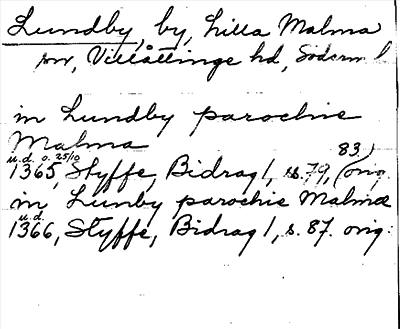 Lundby, by, Lilla Malma
sn, Villåttinge hd, Söderm l
in Lundby parochie
Malma
u.d. o. 25/10 83.)
1365, Styffe, Bidrag 1, s. 79, (orig.
in Lunby parochie Malmæ
u.d.
1366, Styffe, Bidrag 1, s. 87. orig.